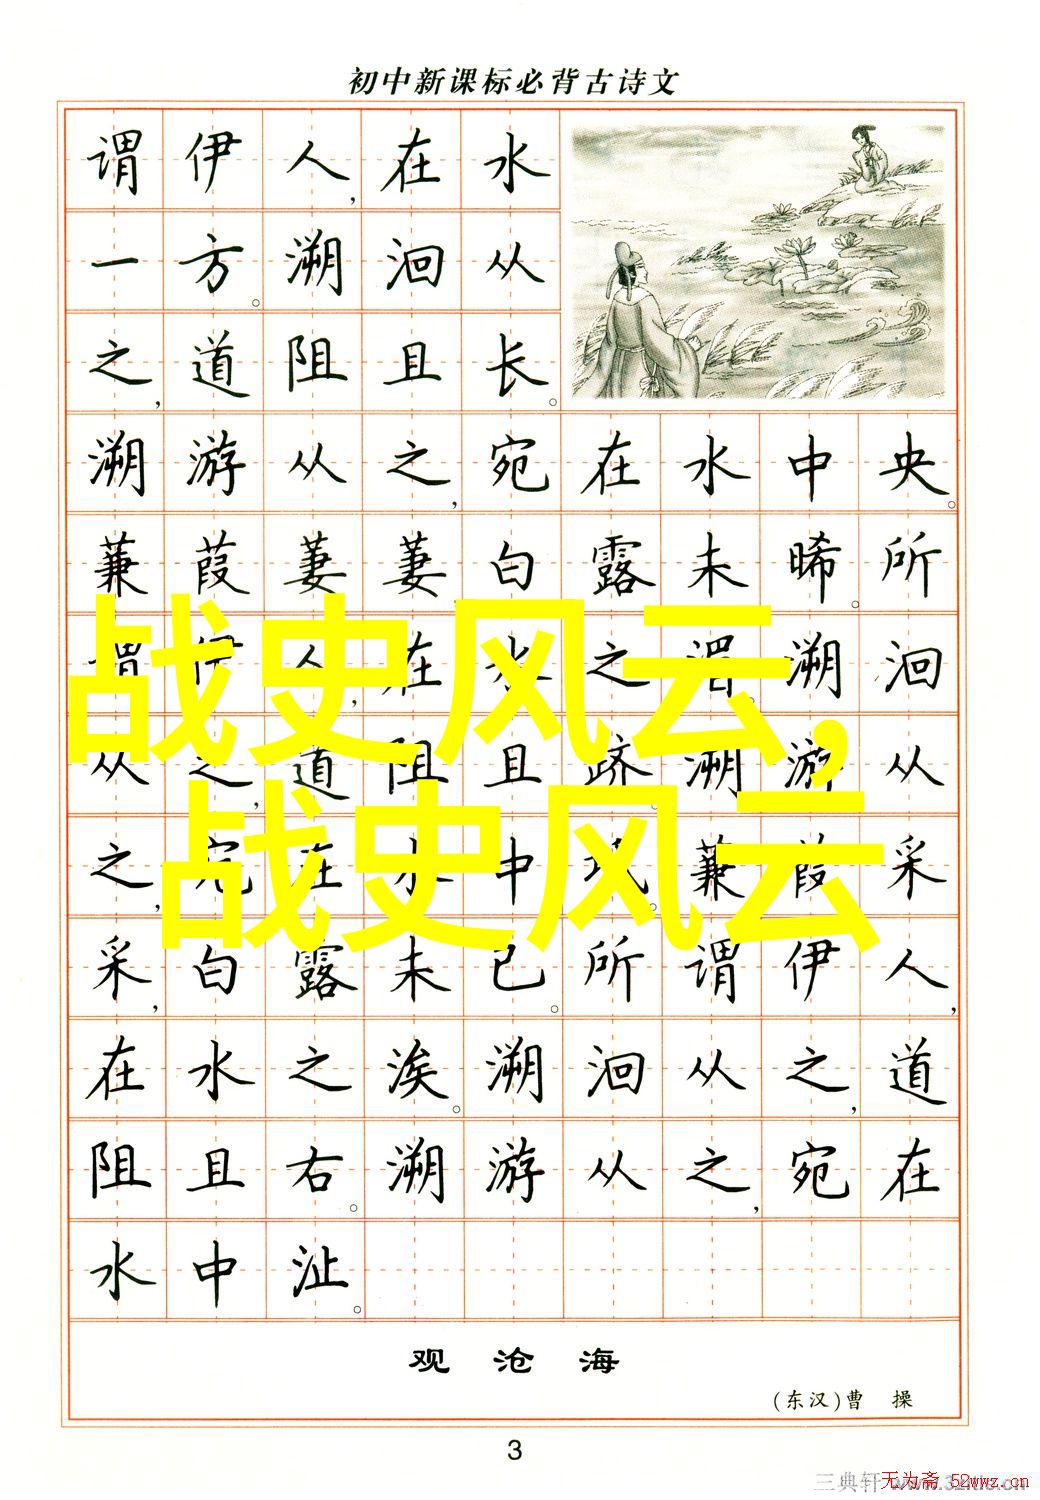 初中新课标必背古诗文
谓伊人,在水
一方。溯洄从
之,道阻且长。
溯游从之,宛在水中央。
蒹葭萋萋,白露未晞。所
谓伊人,在水之湄。溯洄
从之,道阻且跻。溯游从
之,宛在水中坻。蒹葭采
采,白露未已。所谓伊人,
在水之涘。溯洄从之,道
阻且右。溯游从之,宛在
水中沚。
战史风云,
战史风云
观沧海
(东汉)曹操
3
三典轩
无为斋 52wwz.cn